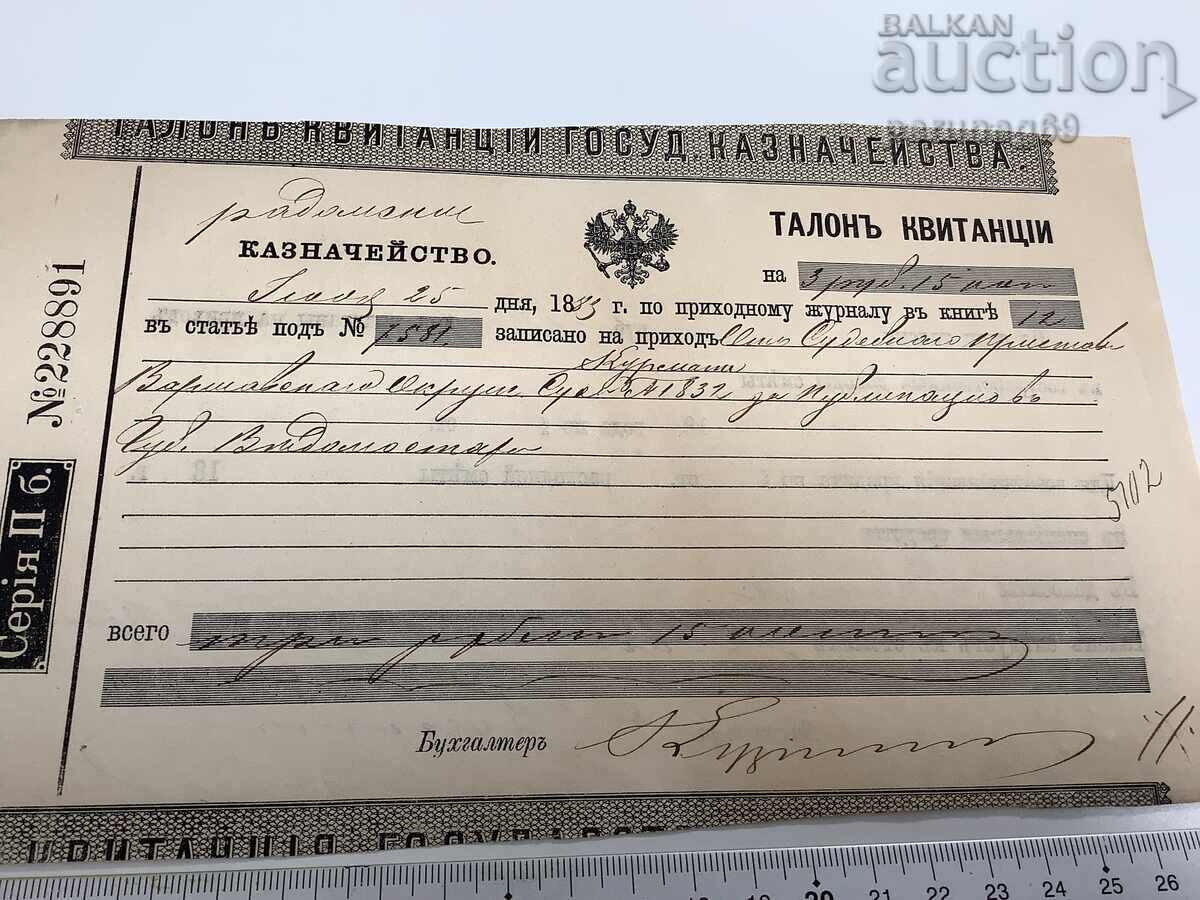 BALKAN
auction
ТАЛОНЪ КВИТАНЦІИ ГОСУД. КАЗНАЧЕЙСТВА.
КАЗНАЧЕЙСТВО.
ТАЛОНЪ КВИТАНЦІИ
на 3 руб. 15 коп
25 дня, 1883 г. по приходному журналу въ книгѣ 12
въ статьѣ подъ № 7581 записано на приходъ Отъ Судебного Пристава
Курмана
Варшавскаго Окружн. Суда № 1832 за публикацию въ
Губ. Вѣдомостяхъ
5102
всего три рубли 15 копѣекъ
Бухгалтеръ
№228891
Серія П б.
КВИТАНЦІЯ ГОСУДАРСТ
20 21 22 23 24 25 26